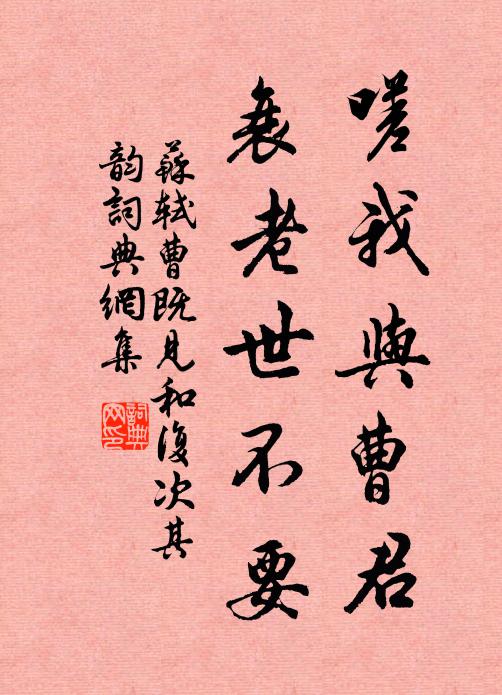 嗟我與曹君
衰老世不要
蘇軾曹既見和復次其
韵詞典網集
詞典
网印